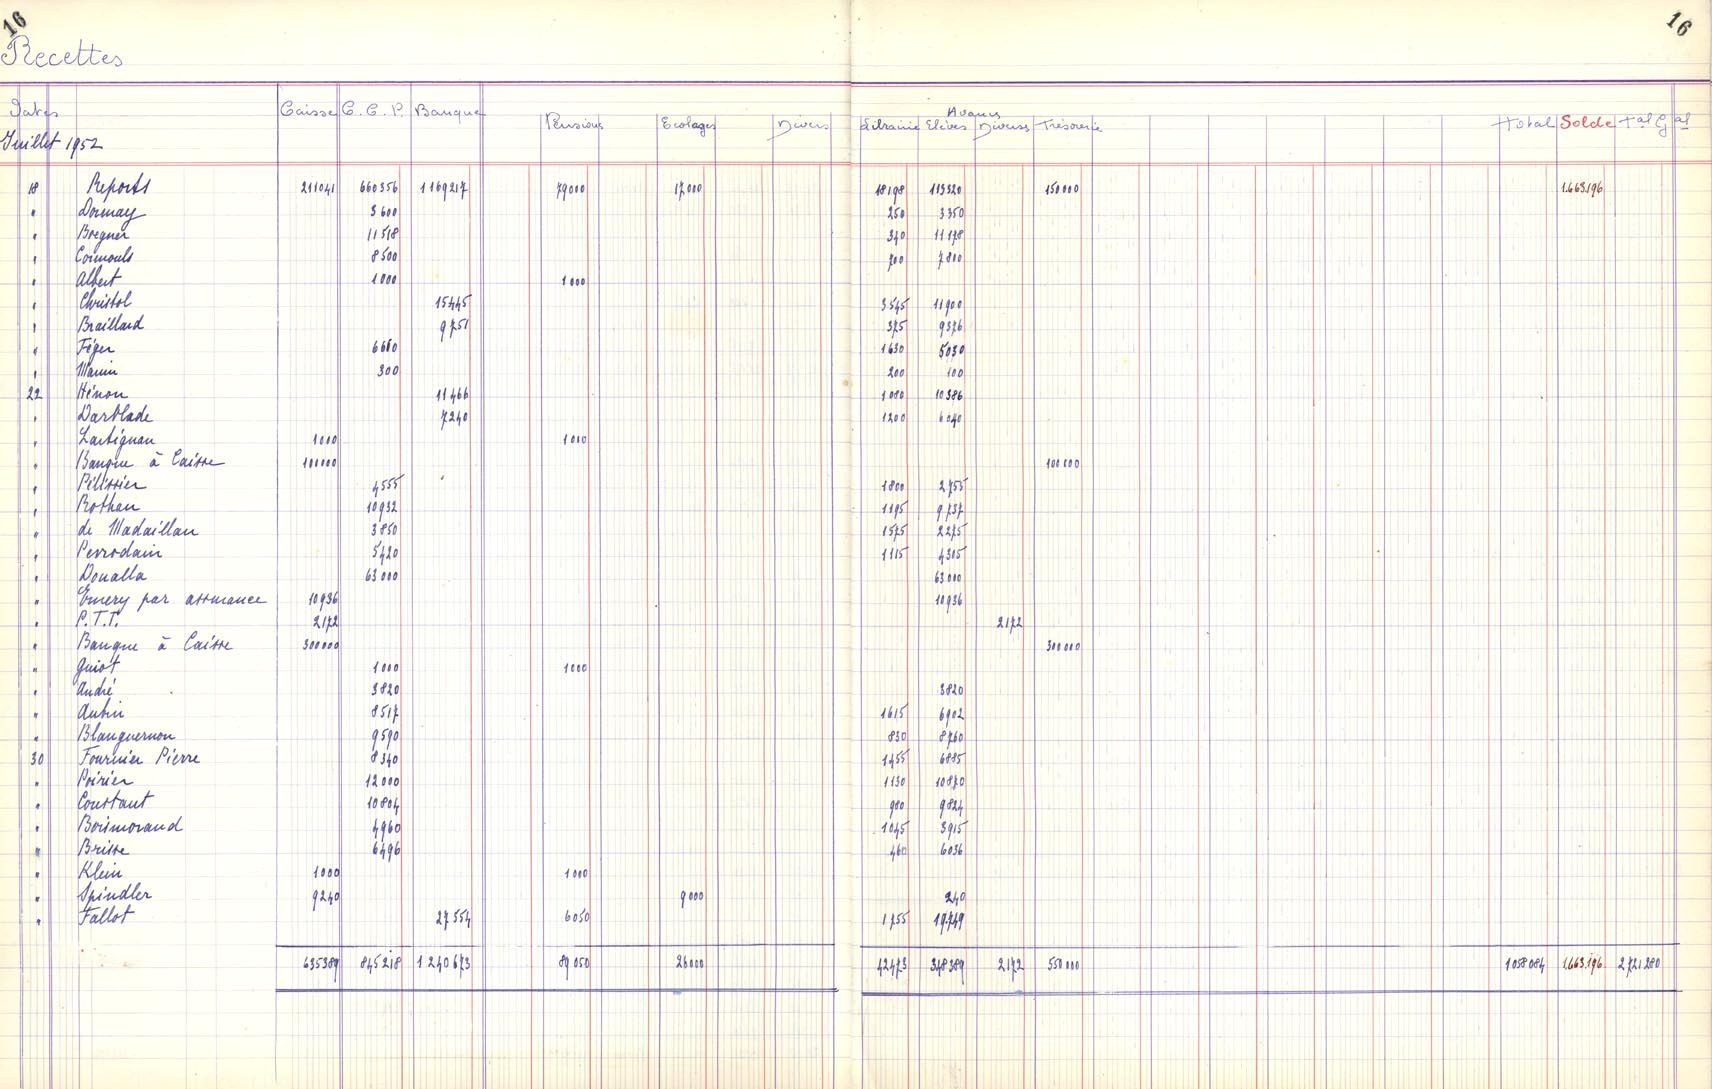 16
16
Recettes
Dates Caisse C.C.P. Banque Pensions Ecolages Divers Librairie Avances Elèves Diverses Trésorerie Total Solde Tal Gal
Juillet 1952
18 Reports 211041 660356 1169217 79000 17000 18198 113320 150000 1.663.196
" Dormay 3600 250 3350
" Bregner 11518 340 11178
" Cormouls 8500 700 7800
" Albert 1000 1000
" Christol 15445 3545 11900
" Braillard 9751 375 9376
" Féger 6660 1630 5030
" Manin 300 200 100
22 Hénon 11466 1080 10386
" Darblade 7240 1200 6040
" Lartignau 1000 1000
" Banque à Caisse 100000 100000
" Pélissier 4555 1800 2755
" Rothan 10932 1195 9737
" de Madaillan 3850 1575 2275
" Perrodain 5420 1115 4305
" Doualla 63000 63000
" Emery par assurance 10936 10936
" P.T.T. 2172 2172
" Banque à Caisse 300000 300000
" Guiot 1000 1000
" André 3820 3820
" Aubin 8517 1615 6902
" Blanguernon 9590 830 8760
30 Fournier Pierre 8340 1455 6885
" Poirier 12000 1130 10870
" Constant 10804 980 9824
" Boismorand 4960 1045 3915
" Brisse 6496 460 6036
" Klein 1000 1000
" Spindler 9240 9000 240
" Fallot 27554 6050 1755 19.749
635389 845218 1240673 89050 26000 42473 348389 2172 550000 1058084 1.663.196 2721280